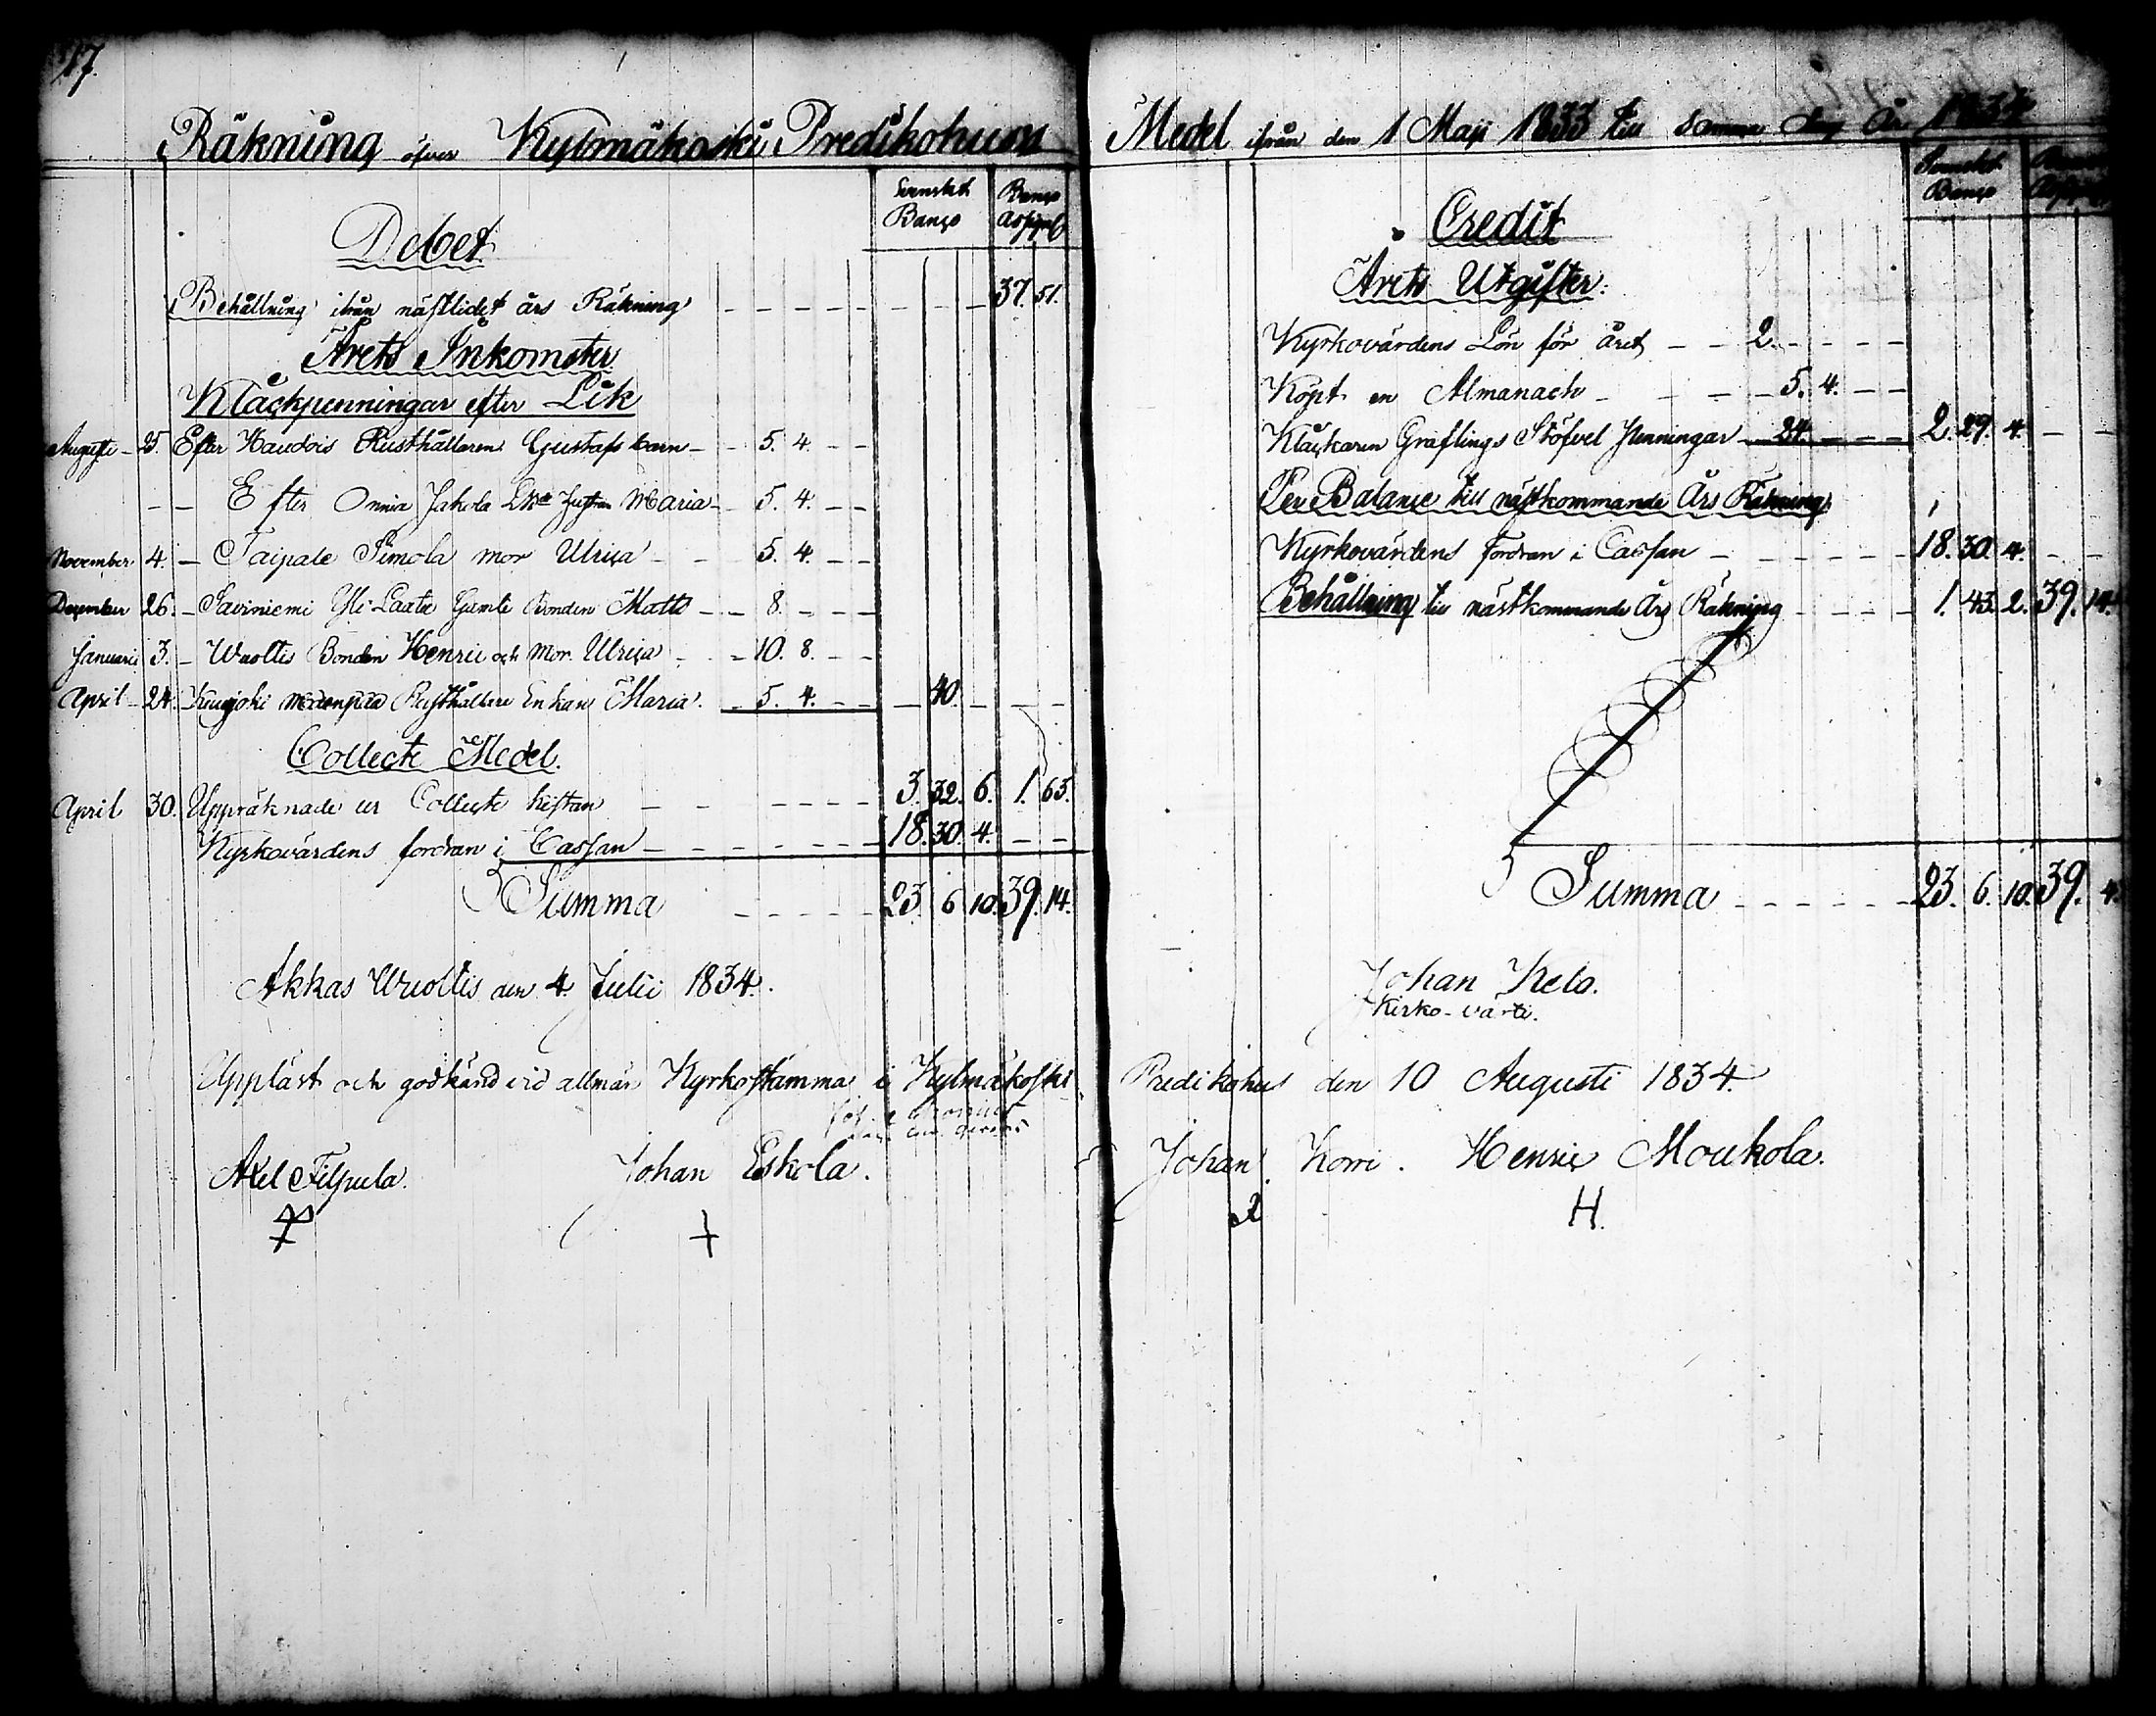 17.
Räkning öfver Kylmäkoski Predikohuus
Svenskt Banço
Banco Assign
Debet
Behållning ifrån nästlidet års Räkning - - - - 37. 51.
Årets Inkomster
Klåckpenningar efter Lik
Augusti - 25. Efter Haudois Rusthållaren Gustafs barn - - 5. 4. - -
- - Efter Onnia Jakola Maria - - 5. 4. - -
November 4. - Taipale Simola mor Ulriça - - 5. 4. - -
December 26. - Saviniemi Yli Laata Gamle Bonden Matts - - 8. - - -
Januarii 3. - Wuoltis Bonden Henric och Mor Ulriça - - 10. 8. - -
April - 24. Rusthållare Enkan Maria. - 5. 4. - - - 40. - - -
Collect Medel.
April 30. Uppräknade ur Collect kistan - - - - - - 3. 32. 6. 1. 63.
Kyrkovärdens fordran i Cassan - - - - - - 18. 30. 4. - -
Summa - - - - 23. 6 10. 39. 14.
Akkas Wuoltis den 4. Julii 1834.
Uppläst och godkänd vid allmän Kyrkostämma i Kylmäkoski
Axel Filpula.
Johan Eskola.
Medel ifrån den 1 Maji 1833 till samma dag År 1834
Svenskt Banço
Credit
Årets Utgifter.
Kyrkovärdens Lön för året - - 2. - - - -
Köpt en Almanach - - - - 5. 4. - -
Klåckaren Gräflings Stöfvel Penningar - 24. - - - 2. 29. 4. - -
Per Balance till nästkommande Års Räkning.
Kyrkovärdens fordran i Cassan - - - - - - 18. 30. 4. - -
Behållning till nästkommande Års Räkning - - - - 1. 43. 2. 39. 14.
Summa - - - - - 23. 6. 10. 39. 4.
Johan Kelo.
Kirko-värti.
Predikohus den 10 Augusti 1834.
Johan Korri. Henric Moukola.
H.